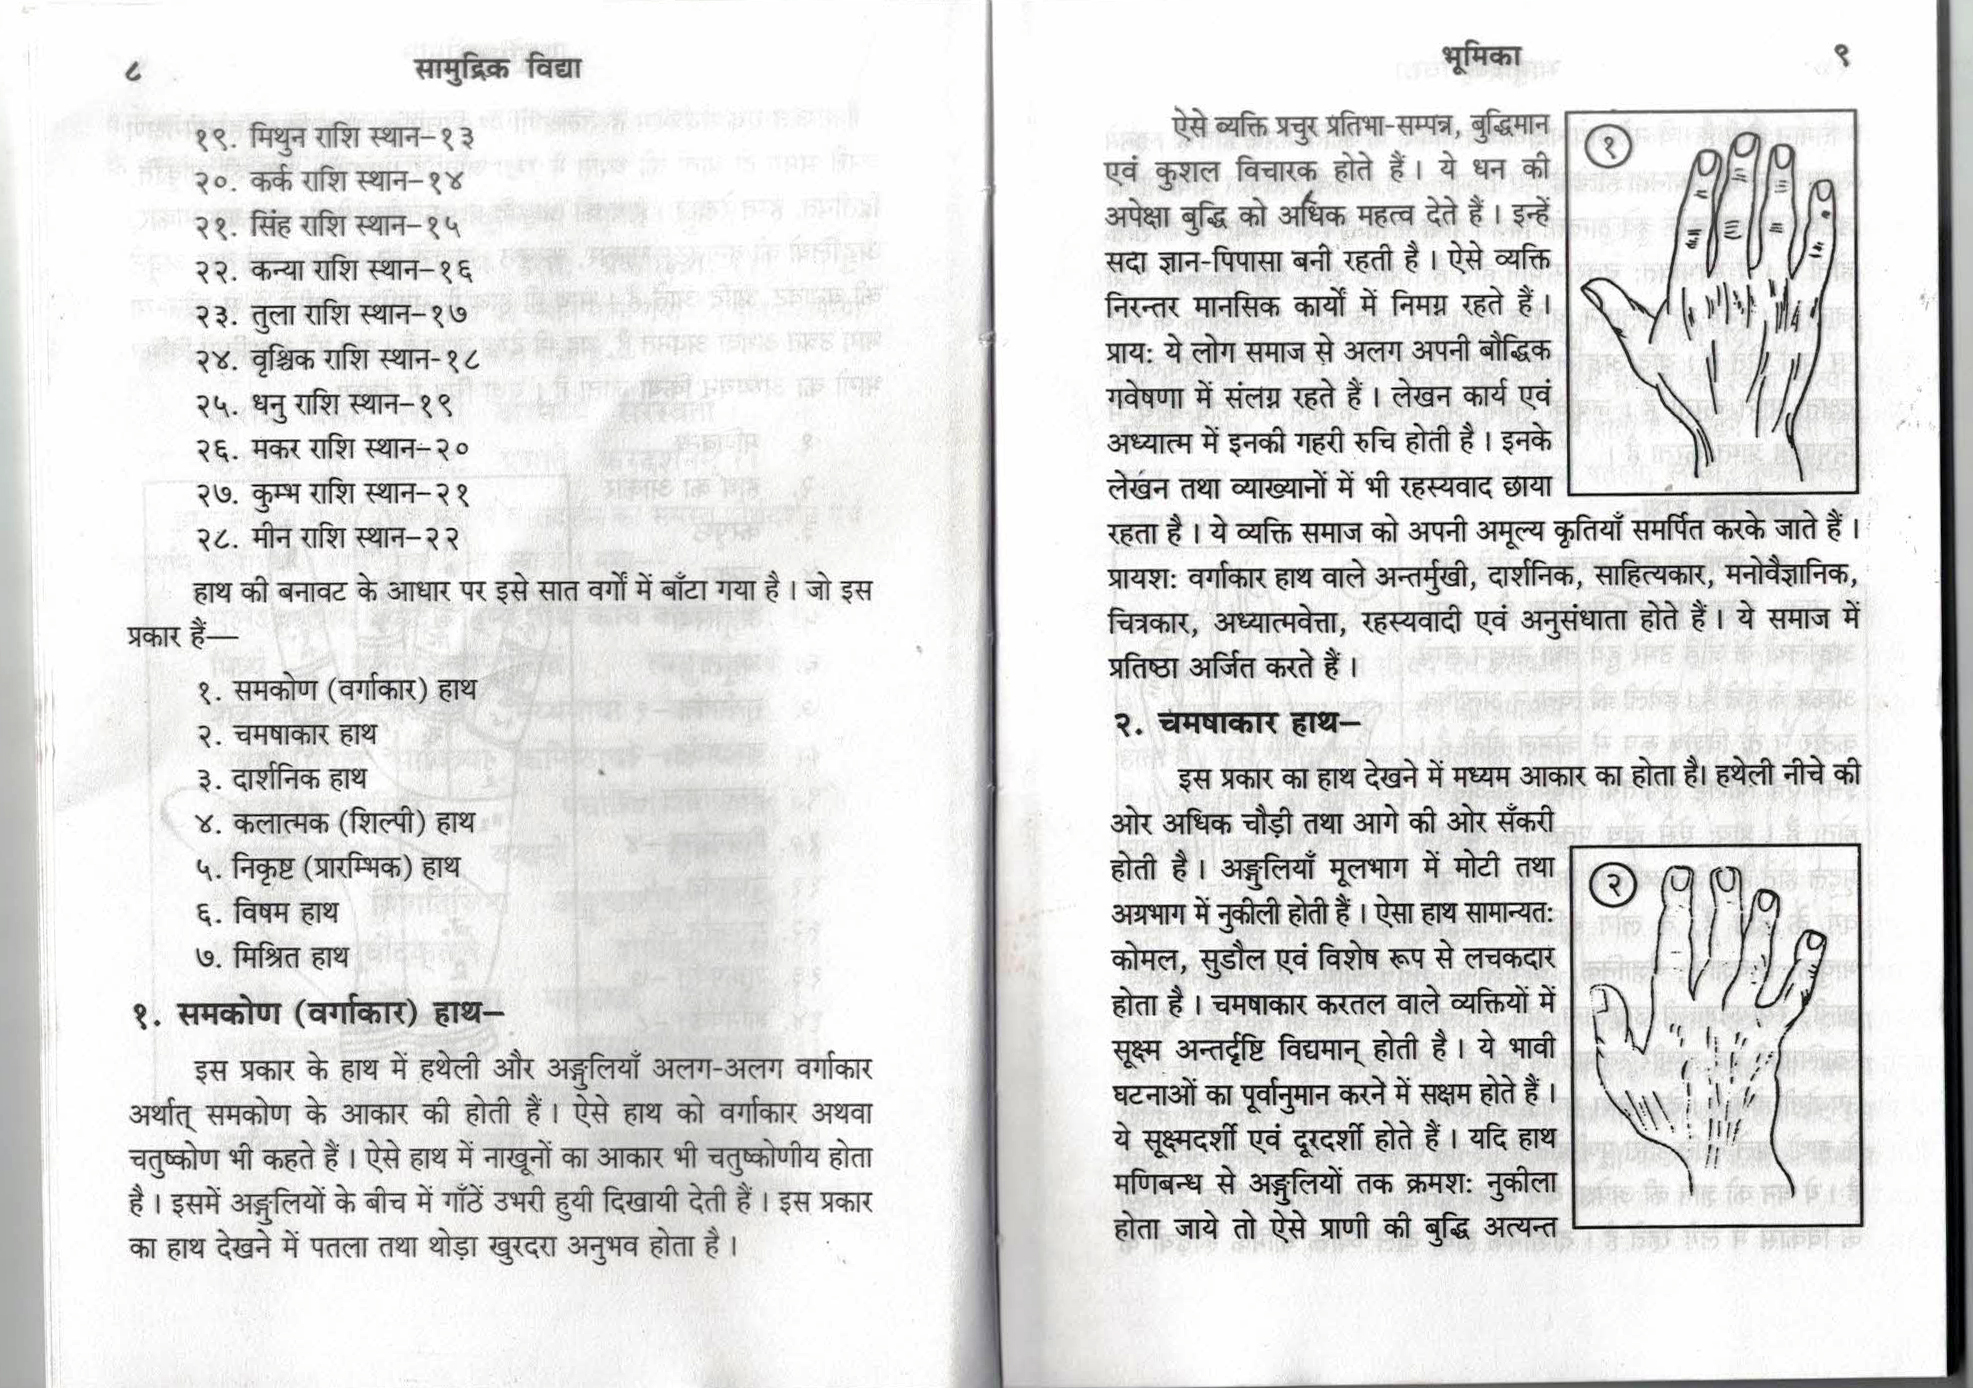 ८
सामुद्रिक विद्या
१९. मिथुन राशि स्थान–१३
२०. कर्क राशि स्थान–१४
२१. सिंह राशि स्थान–१५
२२. कन्या राशि स्थान–१६
२३. तुला राशि स्थान–१७
२४. वृश्चिक राशि स्थान-१८
२५. धनु राशि स्थान–१९
२६. मकर राशि स्थान–२०
२७. कुम्भ राशि स्थान–२१
२८. मीन राशि स्थान–२२
हाथ की बनावट के आधार पर इसे सात वर्गों में बाँटा गया है। जो इस
प्रकार हैं—
१. समकोण (वर्गाकार) हाथ
२. चमषाकार हाथ
३. दार्शनिक हाथ
४. कलात्मक (शिल्पी) हाथ
५. निकृष्ट (प्रारम्भिक) हाथ
६. विषम हाथ
७. मिश्रित हाथ
१. समकोण (वर्गाकार) हाथ–
इस प्रकार के हाथ में हथेली और अङ्गुलियाँ अलग-अलग वर्गाकार
अर्थात् समकोण के आकार की होती हैं। ऐसे हाथ को वर्गाकार अथवा
चतुष्कोण भी कहते हैं। ऐसे हाथ में नाखूनों का आकार भी चतुष्कोणीय होता
है। इसमें अङ्गुलियों के बीच में गाँठें उभरी हुयी दिखायी देती हैं। इस प्रकार
का हाथ देखने में पतला तथा थोड़ा खुरदरा अनुभव होता है।
भूमिका
९
ऐसे व्यक्ति प्रचुर प्रतिभा-सम्पन्न, बुद्धिमान
एवं कुशल विचारक होते हैं। ये धन की
अपेक्षा बुद्धि को अधिक महत्व देते हैं। इन्हें
सदा ज्ञान-पिपासा बनी रहती है। ऐसे व्यक्ति
निरन्तर मानसिक कार्यों में निमग्न रहते हैं।
प्राय: ये लोग समाज से अलग अपनी बौद्धिक
गवेषणा में संलग्न रहते हैं। लेखन कार्य एवं
अध्यात्म में इनकी गहरी रुचि होती है। इनके
लेखन तथा व्याख्यानों में भी रहस्यवाद छाया
रहता है। ये व्यक्ति समाज को अपनी अमूल्य कृतियाँ समर्पित करके जाते हैं।
प्रायश: वर्गाकार हाथ वाले अन्तर्मुखी, दार्शनिक, साहित्यकार, मनोवैज्ञानिक,
चित्रकार, अध्यात्मवेत्ता, रहस्यवादी एवं अनुसंधाता होते हैं। ये समाज में
प्रतिष्ठा अर्जित करते हैं।
१
२. चमषाकार हाथ–
इस प्रकार का हाथ देखने में मध्यम आकार का होता है। हथेली नीचे की
ओर अधिक चौड़ी तथा आगे की ओर सँकरी
होती है। अङ्गुलियाँ मूलभाग में मोटी तथा
अग्रभाग में नुकीली होती हैं। ऐसा हाथ सामान्यत:
कोमल, सुडौल एवं विशेष रूप से लचकदार
होता है। चमषाकार करतल वाले व्यक्तियों में
सूक्ष्म अन्तर्दृष्टि विद्यमान् होती है। ये भावी
घटनाओं का पूर्वानुमान करने में सक्षम होते हैं।
ये सूक्ष्मदर्शी एवं दूरदर्शी होते हैं। यदि हाथ
मणिबन्ध से अङ्गुलियों तक क्रमश: नुकीला
होता जाये तो ऐसे प्राणी की बुद्धि अत्यन्त
२